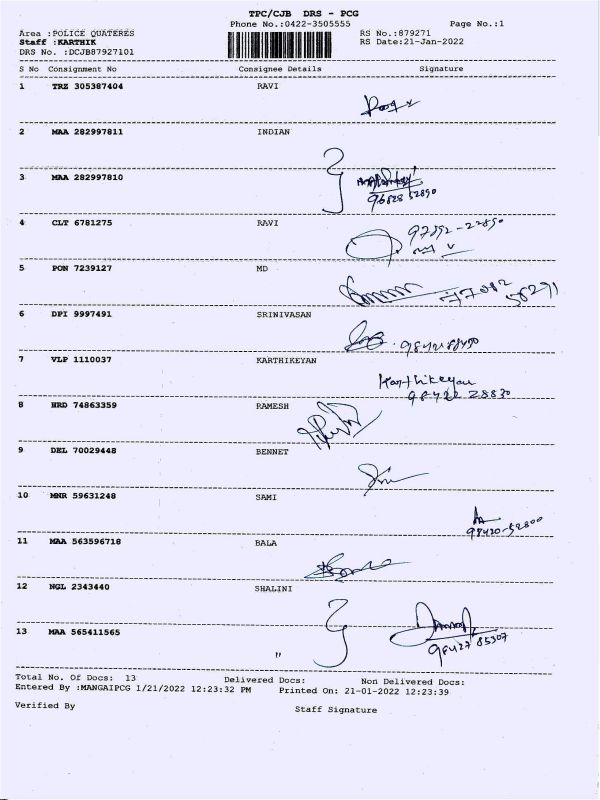 TPC/CJB DRS - PCG
Phone No.:0422-3505555
Page No.:1
Area :POLICE QUATERES
RS No.:879271
Staff :KARTHIK
RS Date:21-Jan-2022
DRS No. :DCJB87927101
S No Consignment No Consignee Details Signature
1 TRZ 305387404 RAVI
2 MAA 282997811 INDIAN
3 MAA 282997810
96828 52890
4 CLT 6781275 RAVI
97892-22890
5 PON 7239127 MD
6 DPI 9997491 SRINIVASAN
7 VLP 1110037 KARTHIKEYAN
Karthikeyan
98422 28830
8 HRD 74863359 RAMESH
9 DEL 70029448 BENNET
10 MNR 59631248 SAMI
98420-52800
11 MAA 563596718 BALA
12 NGL 2343440 SHALINI
13 MAA 565411565 "
98427 85307
Total No. Of Docs: 13 Delivered Docs: Non Delivered Docs:
Entered By :MANGAIPCG 1/21/2022 12:23:32 PM Printed On: 21-01-2022 12:23:39
Verified By Staff Signature